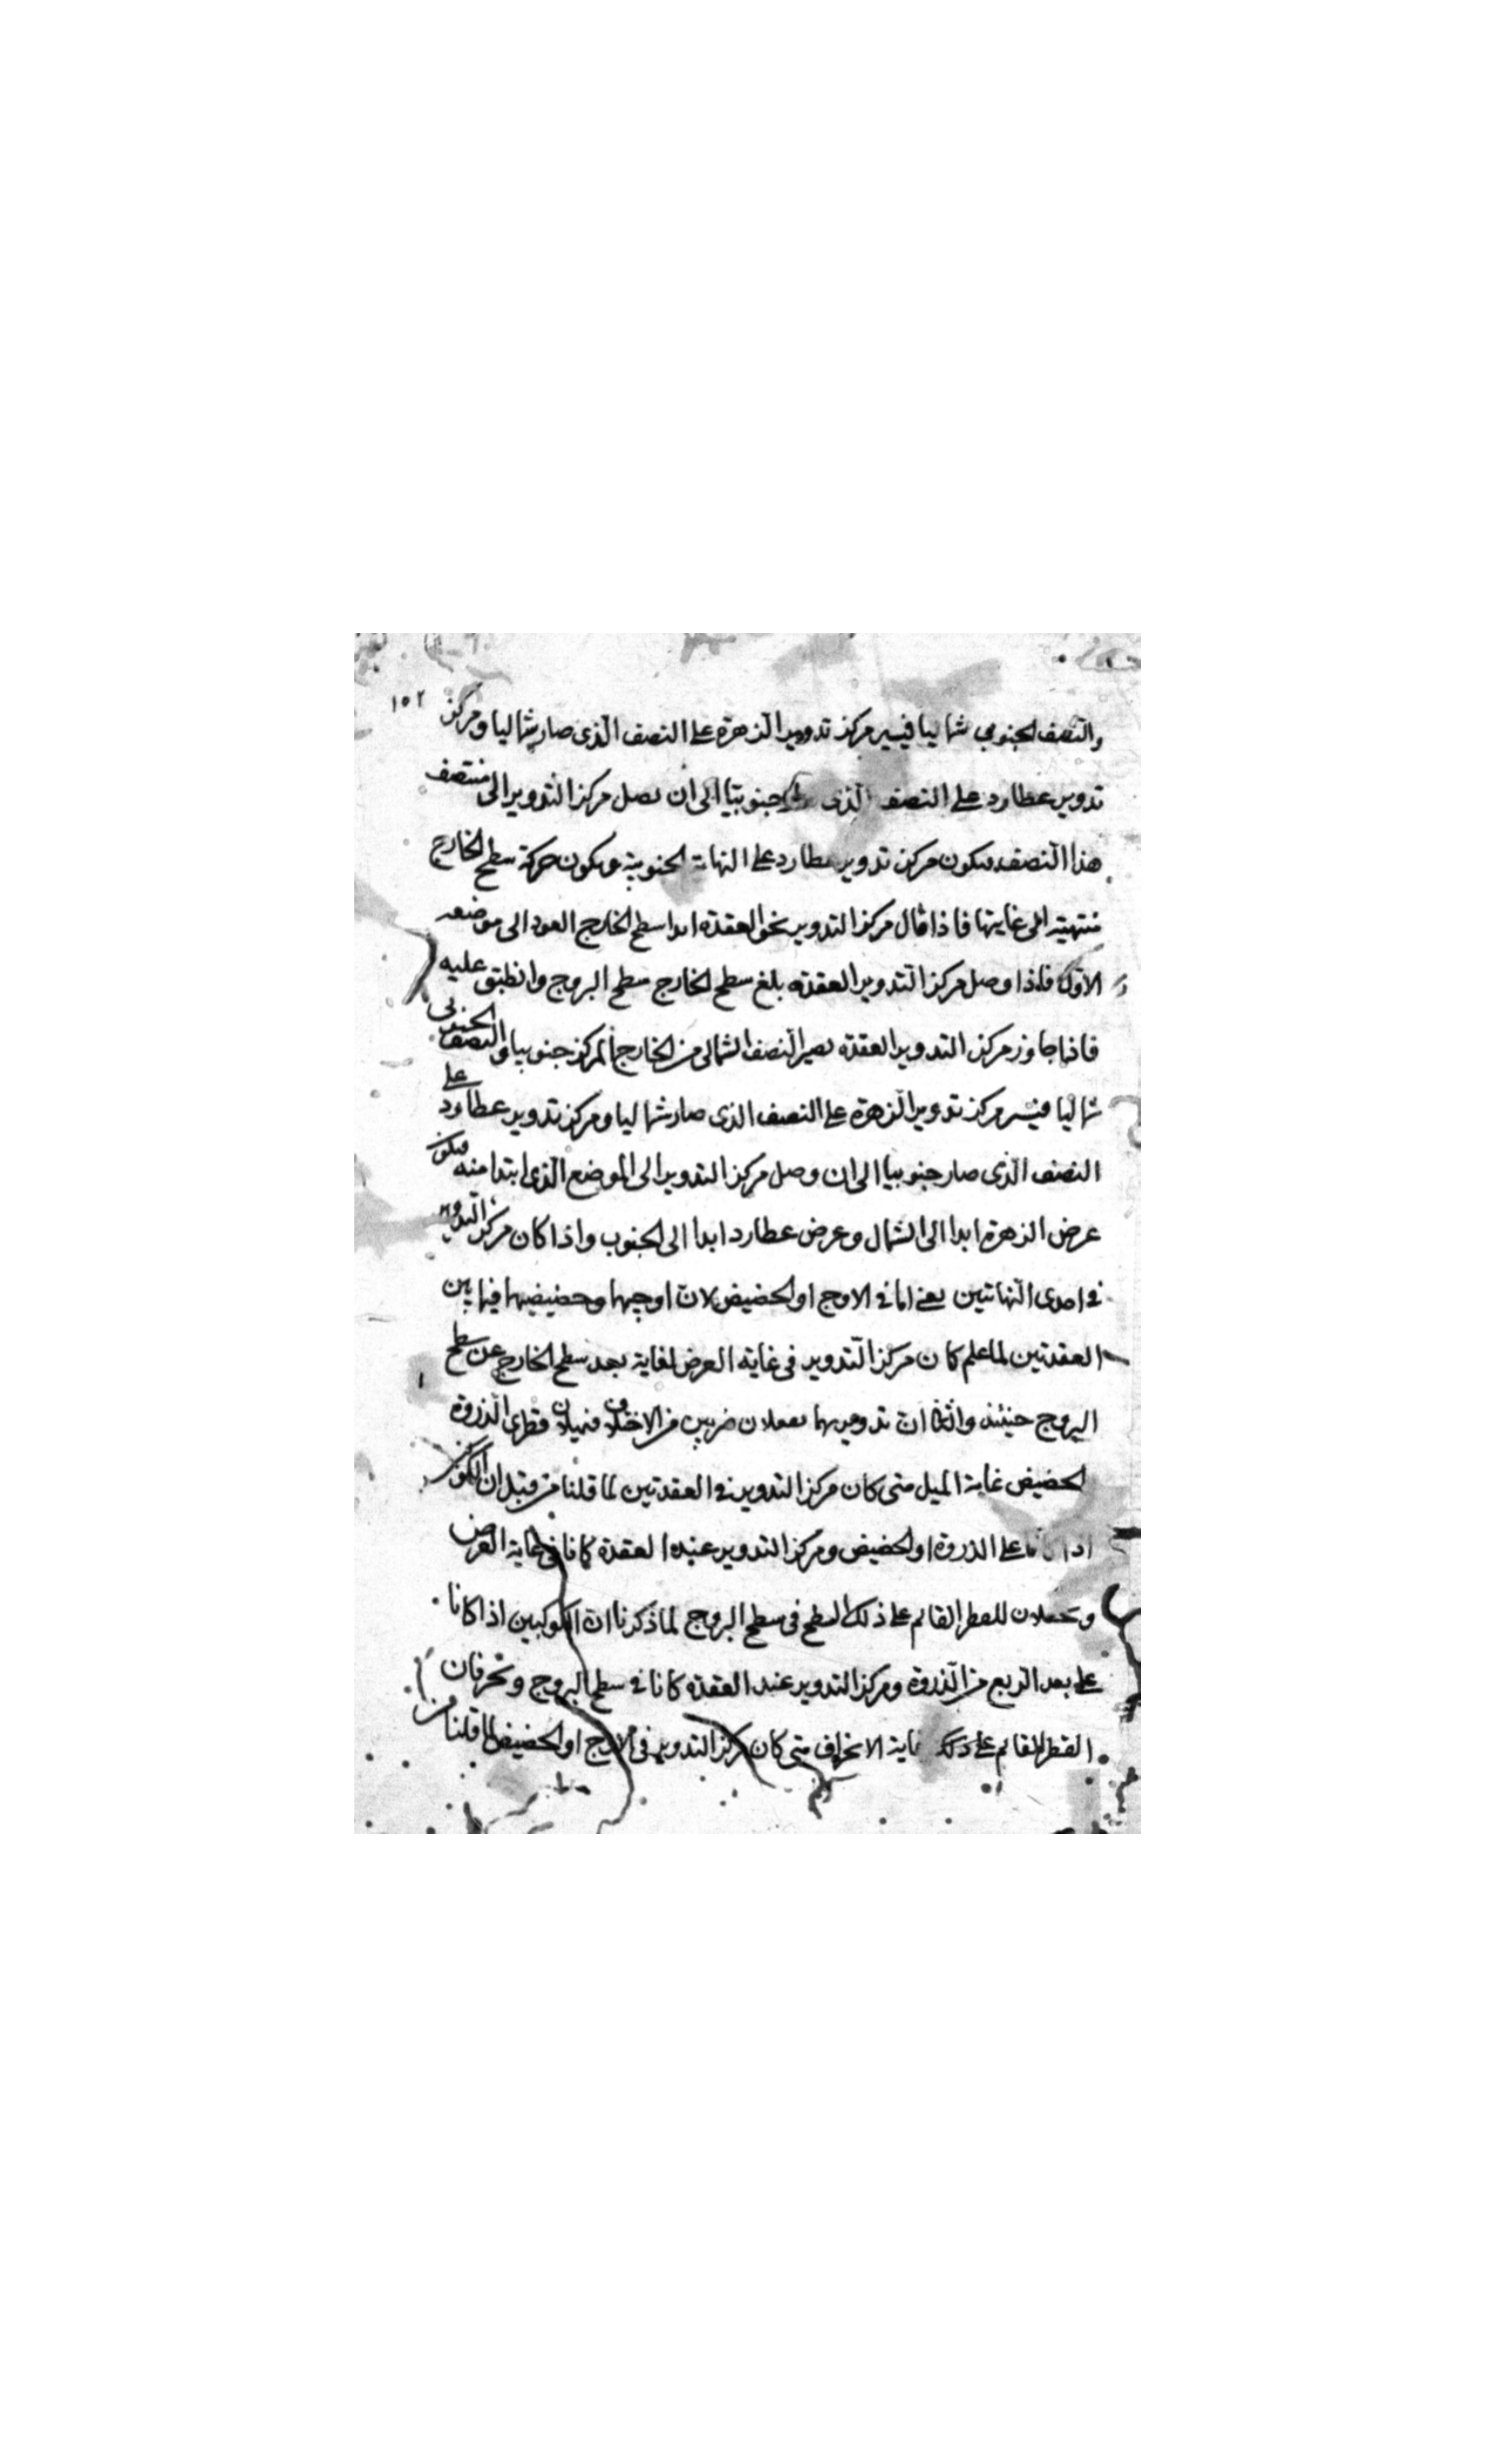 ١٥٢
والنصف الجنوبي شماليا فيسير مركز تدوير الزهرة على النصف الذى صار شماليا ومركز
تدوير عطارد على النصف الذى جنوبيا الى ان يصل مركز التدوير الى منتصف
هذا النصف فيكون مركز تدوير عطارد على النهاية الجنوبية ويكون حركة سطح الخارج
منتهية الى غايتها فاذا مال مركز التدوير نحو العقدة ابدا سطح الخارج العود الى موضعه
الاول فاذا وصل مركز التدوير العقدة بلغ سطح الخارج سطح البروج وانطبق عليه
فاذا جاوز مركز التدوير العقدة يصير النصف الشمالى من الخارج المركز جنوبيا والنصف الجنوبى
شماليا فيسير مركز تدوير الزهرة على النصف الذى صار شماليا ومركز تدوير عطارد على
النصف الذى صار جنوبيا الى ان وصل مركز التدوير الى الموضع الذى ابتدا منه فيكون
عرض الزهرة ابدا الى الشمال وعرض عطارد ابدا الى الجنوب واذا كان مركز التدوير
فى احدى النهايتين يعنى اما فى الاوج او الحضيض لان اوجيهما وحضيضيهما فيما بين
العقدتين لما علم كان مركز التدوير فى غاية العرض لغاية بعد سطح الخارج عن سطح
البروج حينئذ وايضا ان تدويريهما يفعلان ضربين من الاختلاف فيميلان قطرى الذروة
الحضيض غاية الميل متى كان مركز التدوير فى العقدتين لما قلنا من قبل ان الكوكبين
اذا كانا على الذروة او الحضيض ومركز التدوير عند العقدة كانا فى غاية العرض
ويجعلان للقطر القائم على ذلك السطح فى سطح البروج لما ذكرنا ان الكوكبين اذا كانا
على بعد الربع من الذروة ومركز التدوير عند العقدة كانا فى سطح البروج وتحرفان
القطر القائم على ذلك غاية الانحراف متى كان مركز التدوير فى الاوج او الحضيض لما قلنا من